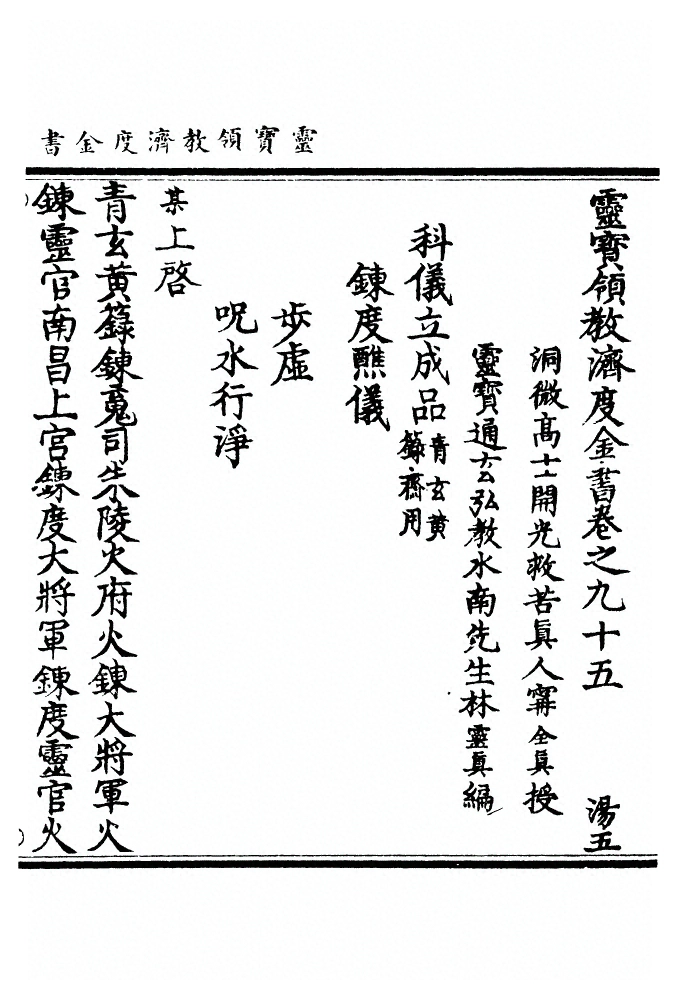 靈寶領教濟度金書
靈寶領教濟度金書卷之九十五 湯五
洞微高士開光救苦眞人寗全眞授
靈寶通玄弘教水南先生林靈眞編
科儀立成品青玄黄籙齋用
鍊度醮儀
步虛
呪水行淨
某上啓
青玄黄籙鍊䰟司朱陵火府火鍊大將軍火
鍊靈官南昌上宮鍊度大將軍鍊度靈官火